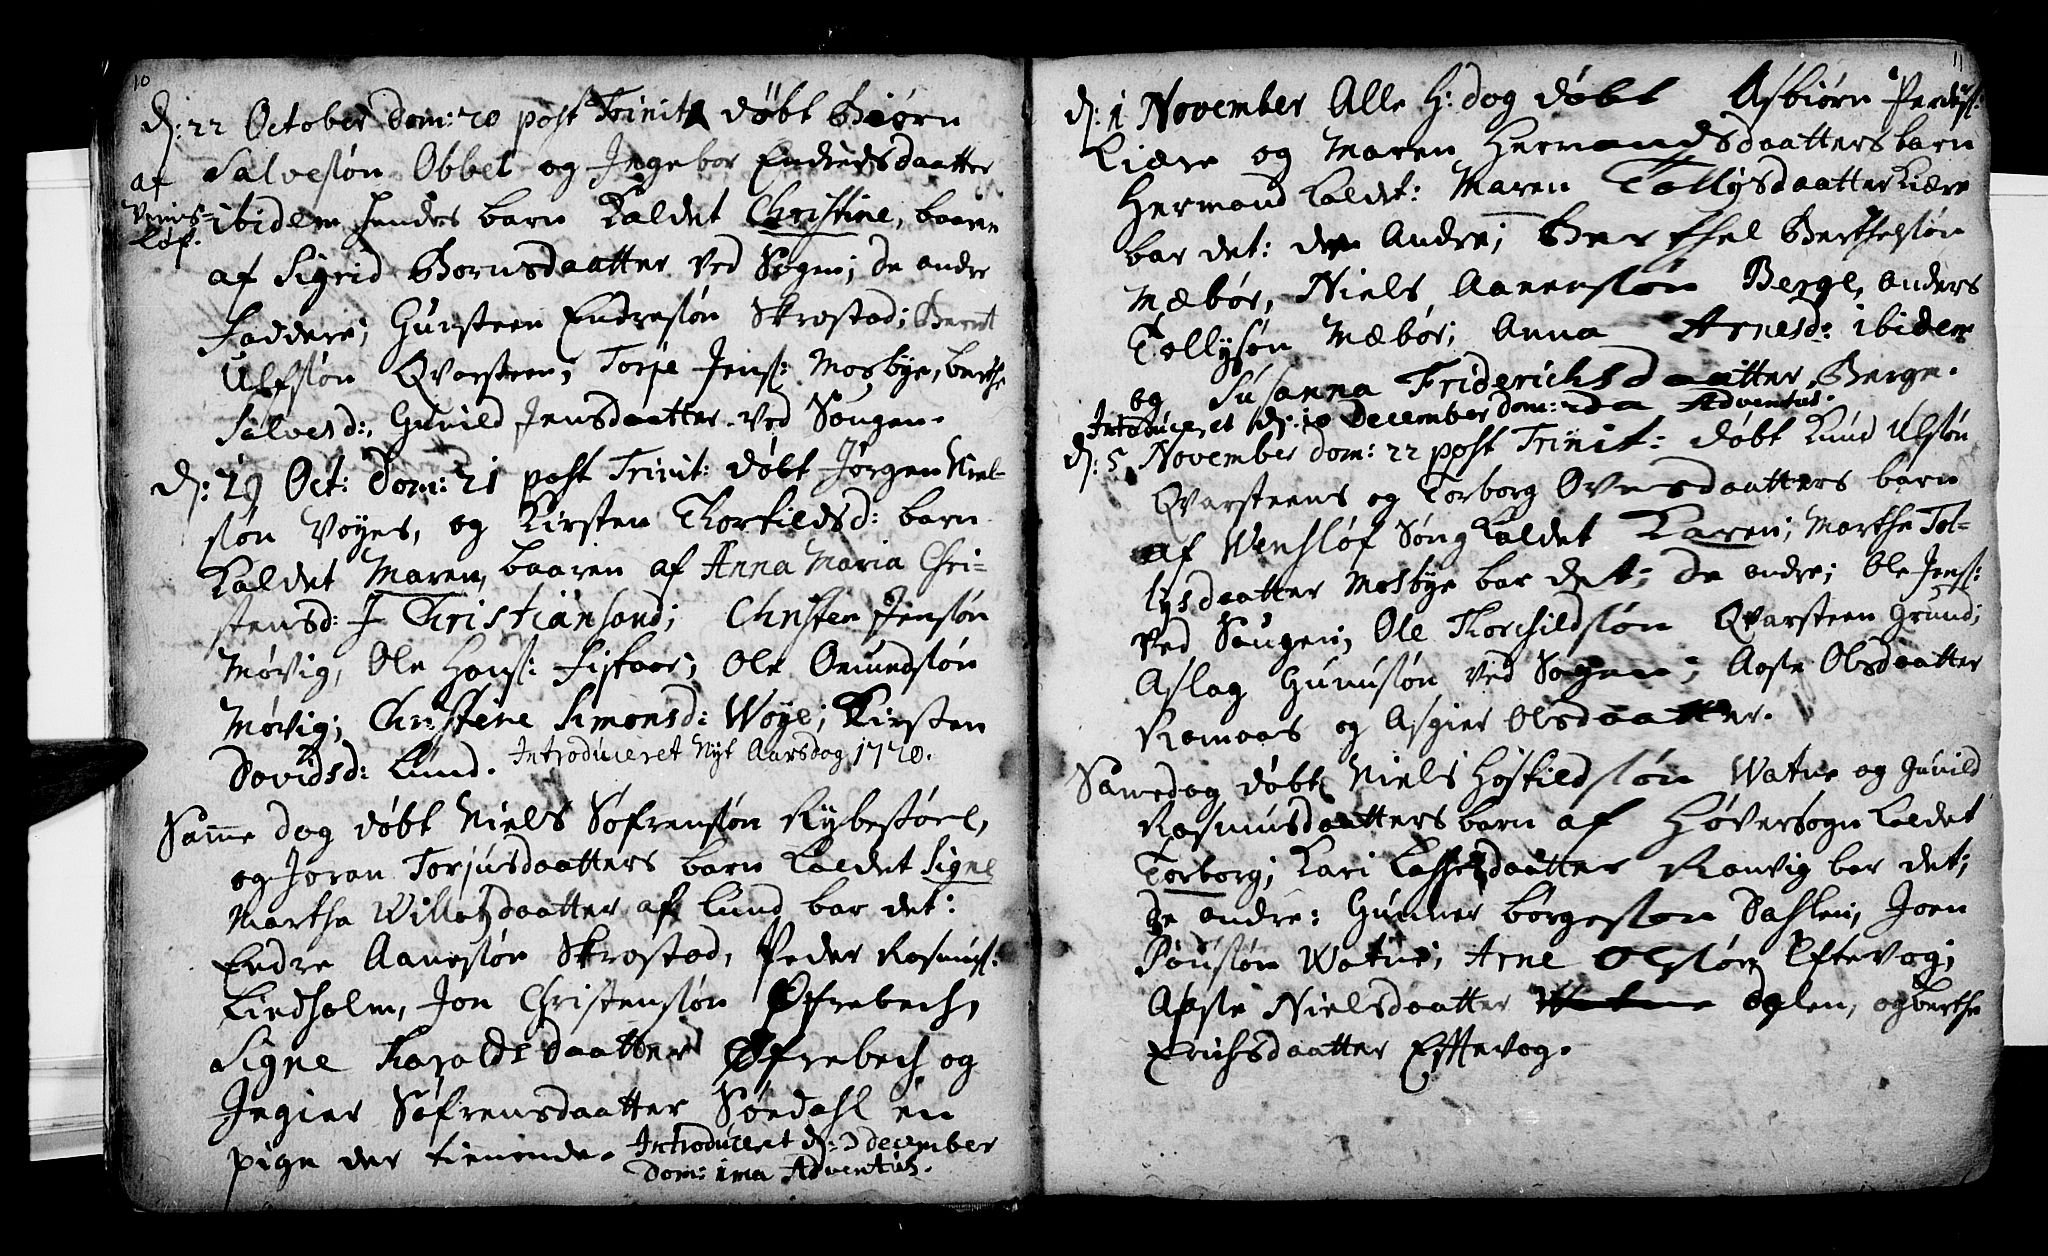 10
d: 22 October Dom: 20 post Trinit: døbt Biørn
Salvesøn Obbel og Ingebor Endredsdaatter
af Vinis=løf.
ibidem hendes barn Kaldet Christine, baaren
af Sigrid Bornsdaatter ved Sogen; de andre
Faddere; Gunsteen Endresøn Skrostad; Bernt
Ulfsøn Qvarsteen; Torje Jens: Mosbye, berthe
Salvesd:, Gunild Jensdaatter ved Sougen.
d: 29 Oct: Dom: 21 post Trinit: døbt Jørgen Niel-
søn Voyes, og Kirsten Thorkildsd: barn
Kaldet Maren, baaren af Anna Maria Chri-
stensd: I Christiansand; Christen Jensøn
Møvig, Ole Hans: Fiskaar; Ole Omundsøn
Møvig; Christine Simonsd: Woye; Kirsten
Davidsd: Lund. Introduceret Nyt Aarsdag 1720.
Same dag døbt Niels Søfrensøn Rybestöel,
og Joran Torjusdaatters barn Kaldet Signe
Martha Willatzdaatter af Lund bar det:
Endre Aanesøn Skrostad, Peder Rasmus:
Lindholm, Jon Christensøn Øfrebech,
Signe Haraldsdaatter Øfrebech og
Ingier Søfrensdaatter Søedahl en
pige der tienende. Introduceret d: 3 December
Dom: 1ma Adventus.
11
d: 1 November Alle H: dag døbt Asbiørn Peders:
Kiære og Maren Hermandsdaatters barn
Hermand Kaldet: Maren Tollysdaatter Kiære
bar det: den Andre; Berthel Berthelsøn
Mæbøe, Niels Aanensøn Berge, Anders
Tollysøn Mæbøe; Anna Arnesd: ibidem
og Susanna Friderichsdaatter Berge.
Introduceret d: 10 December Dom: 2da Adventus.
d: 5 November Dom: 22 post Trinit: døbt Knud Ulsøn
Qvarsteens og Torborg Ovesdaatters barn
af Wensløf Song Kaldet Karen; Marthe Tol-
lysdaatter Mosbye bar det; de andre; Ole Jens:
ved Saugen; Ole Thorchildsøn Qvarsteen Grund;
Aslag Gunusøn ved Sogen; Aase Olsdaatter
Ramaas og Asgier Olsdaatter.
Same dag døbt Niels Høskildsøn Watne og Gunild
Rasmusdaatters barn af Høversogn Kaldet
Torborg; Kari Lassesdaatter Ranvig bar det;
de andre: Gunner börgesøn Dahlen, Joen
Jonsøn Watne; Arne Olsøn Eftevog;
Aasse Nielsdaatter Dalen, og berthe
Erichsdaatter Efftevog.